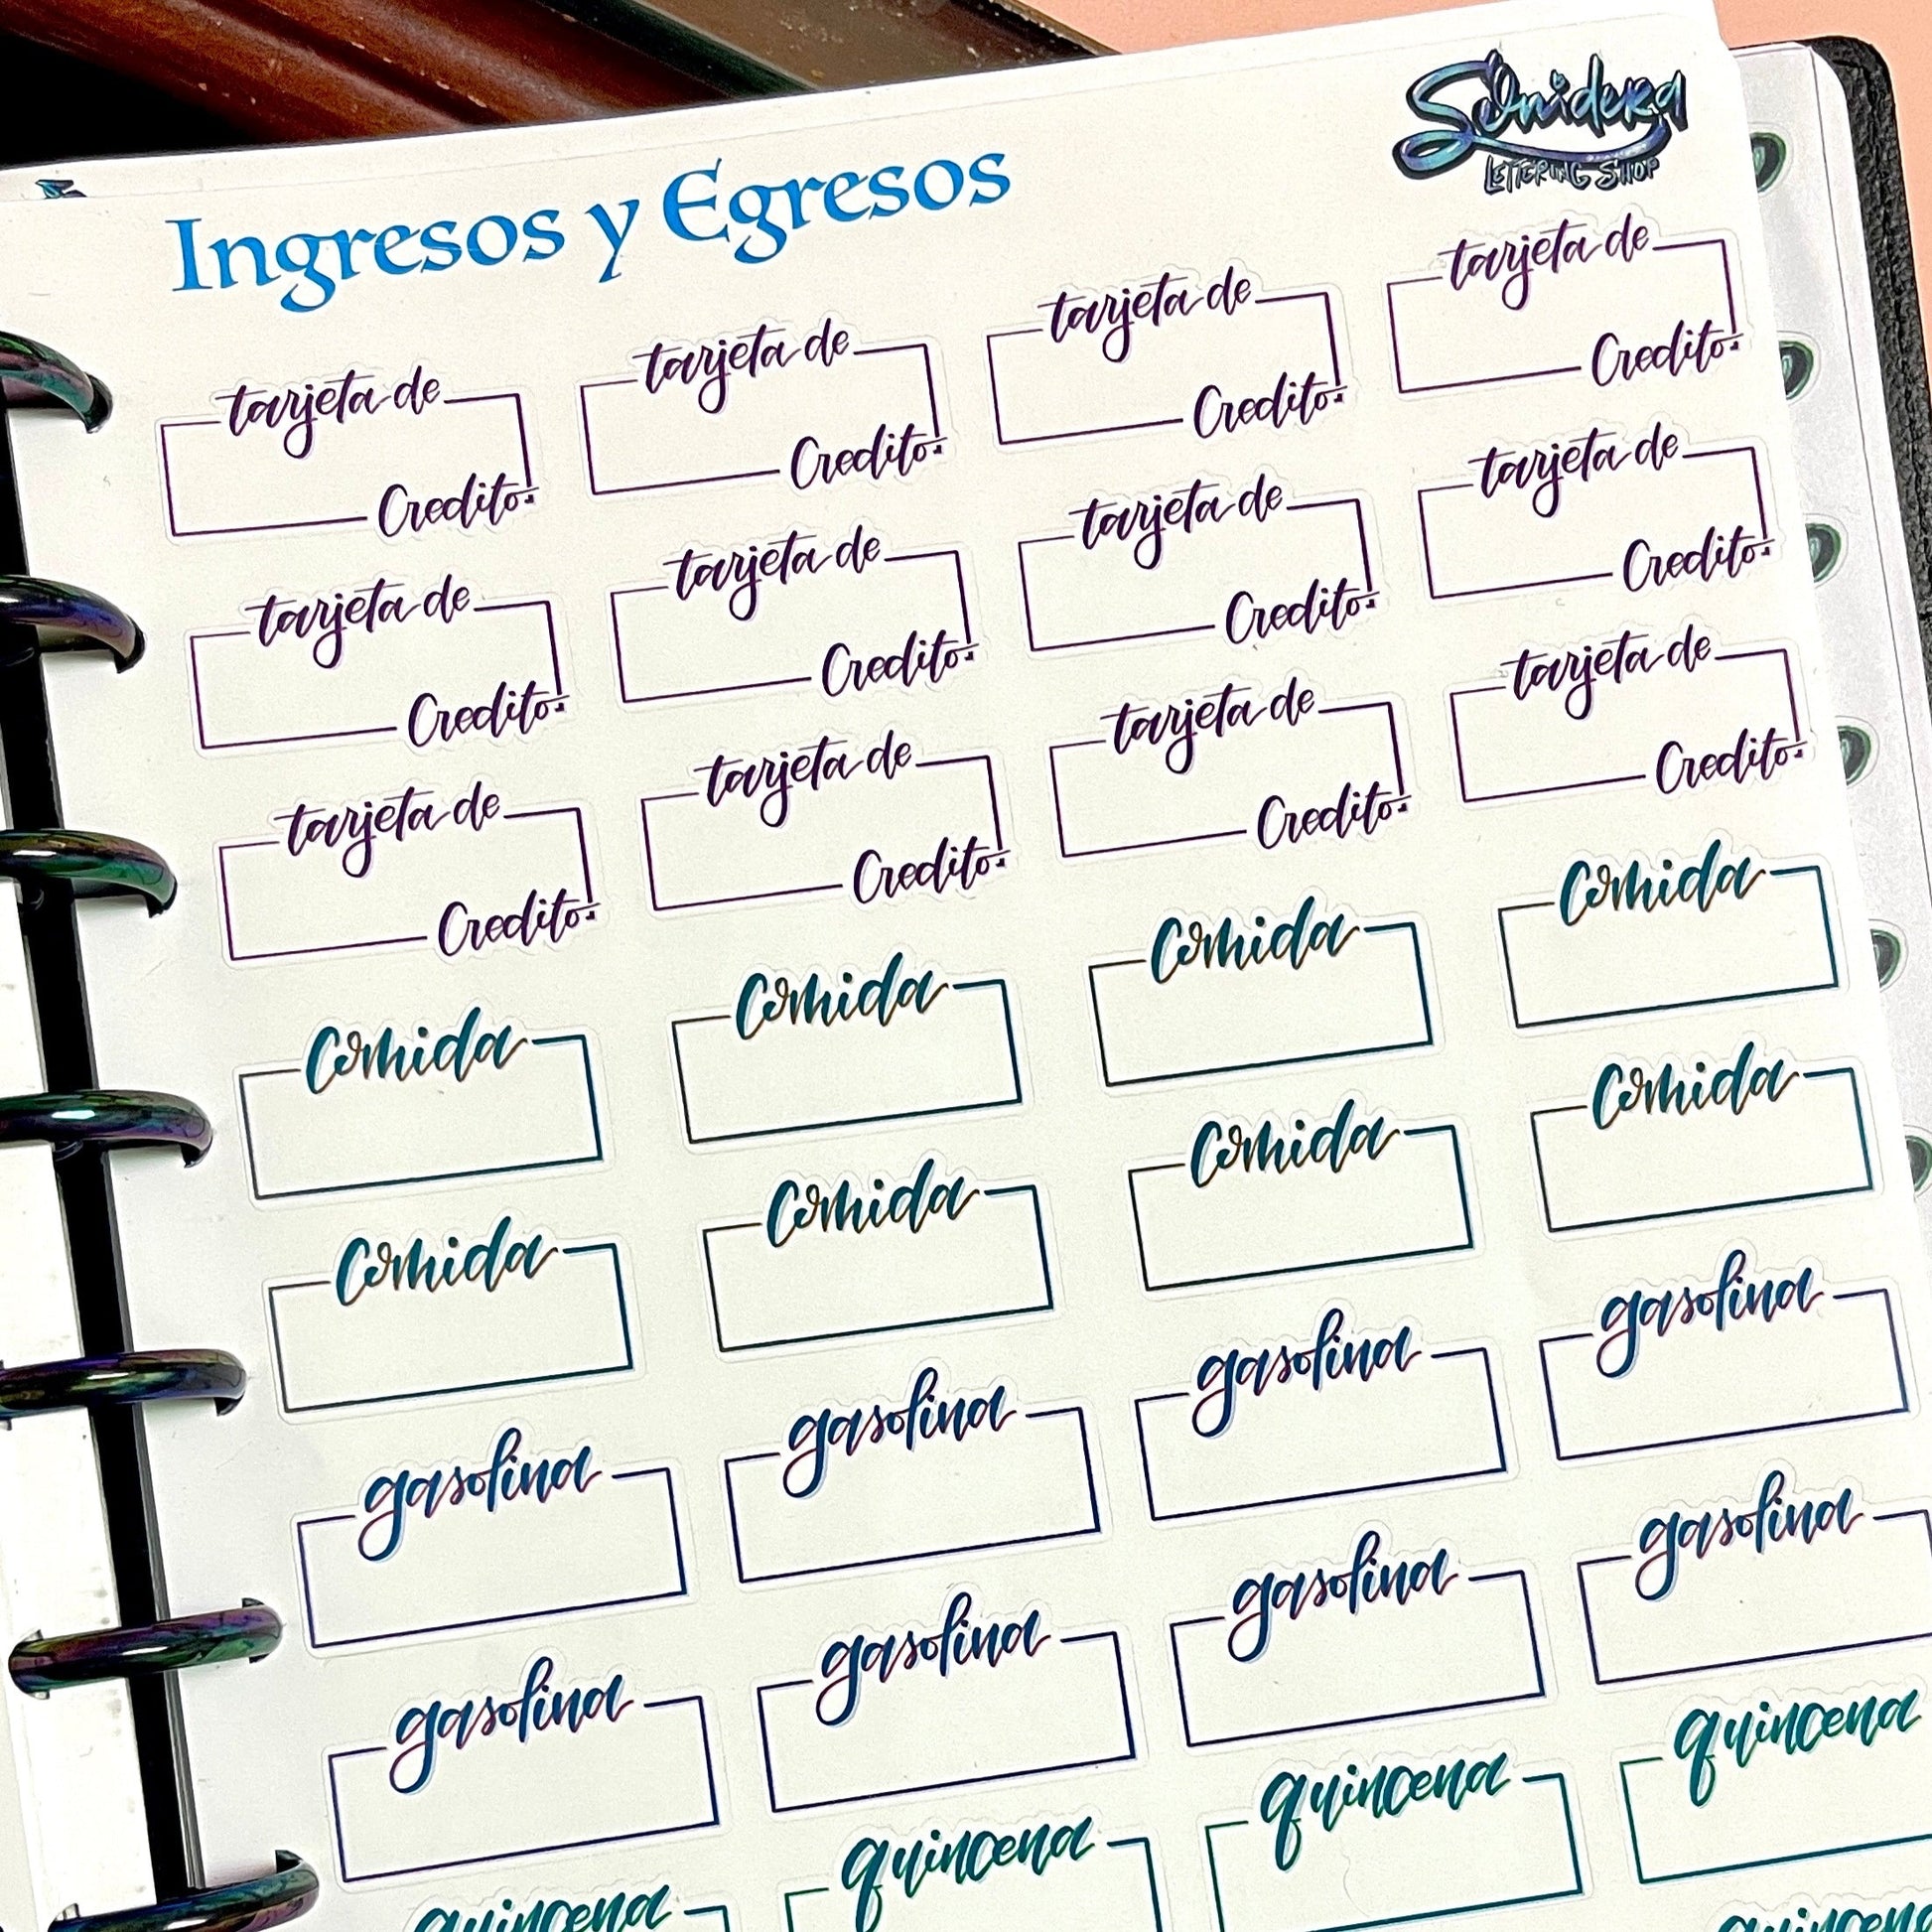 Sonidera
LETTERING SHOP
Ingresos y Egresos
tarjeta de tarjeta de tarjeta de tarjeta de
Credito Credito Credito Credito
tarjeta de tarjeta de tarjeta de tarjeta de
Credito Credito Credito Credito
tarjeta de tarjeta de tarjeta de tarjeta de
Credito Credito Credito Credito
Comida Comida Comida Comida
Comida Comida Comida Comida
gasolina gasolina gasolina gasolina
gasolina gasolina gasolina gasolina
quincena quincena quincena quincena
quincena